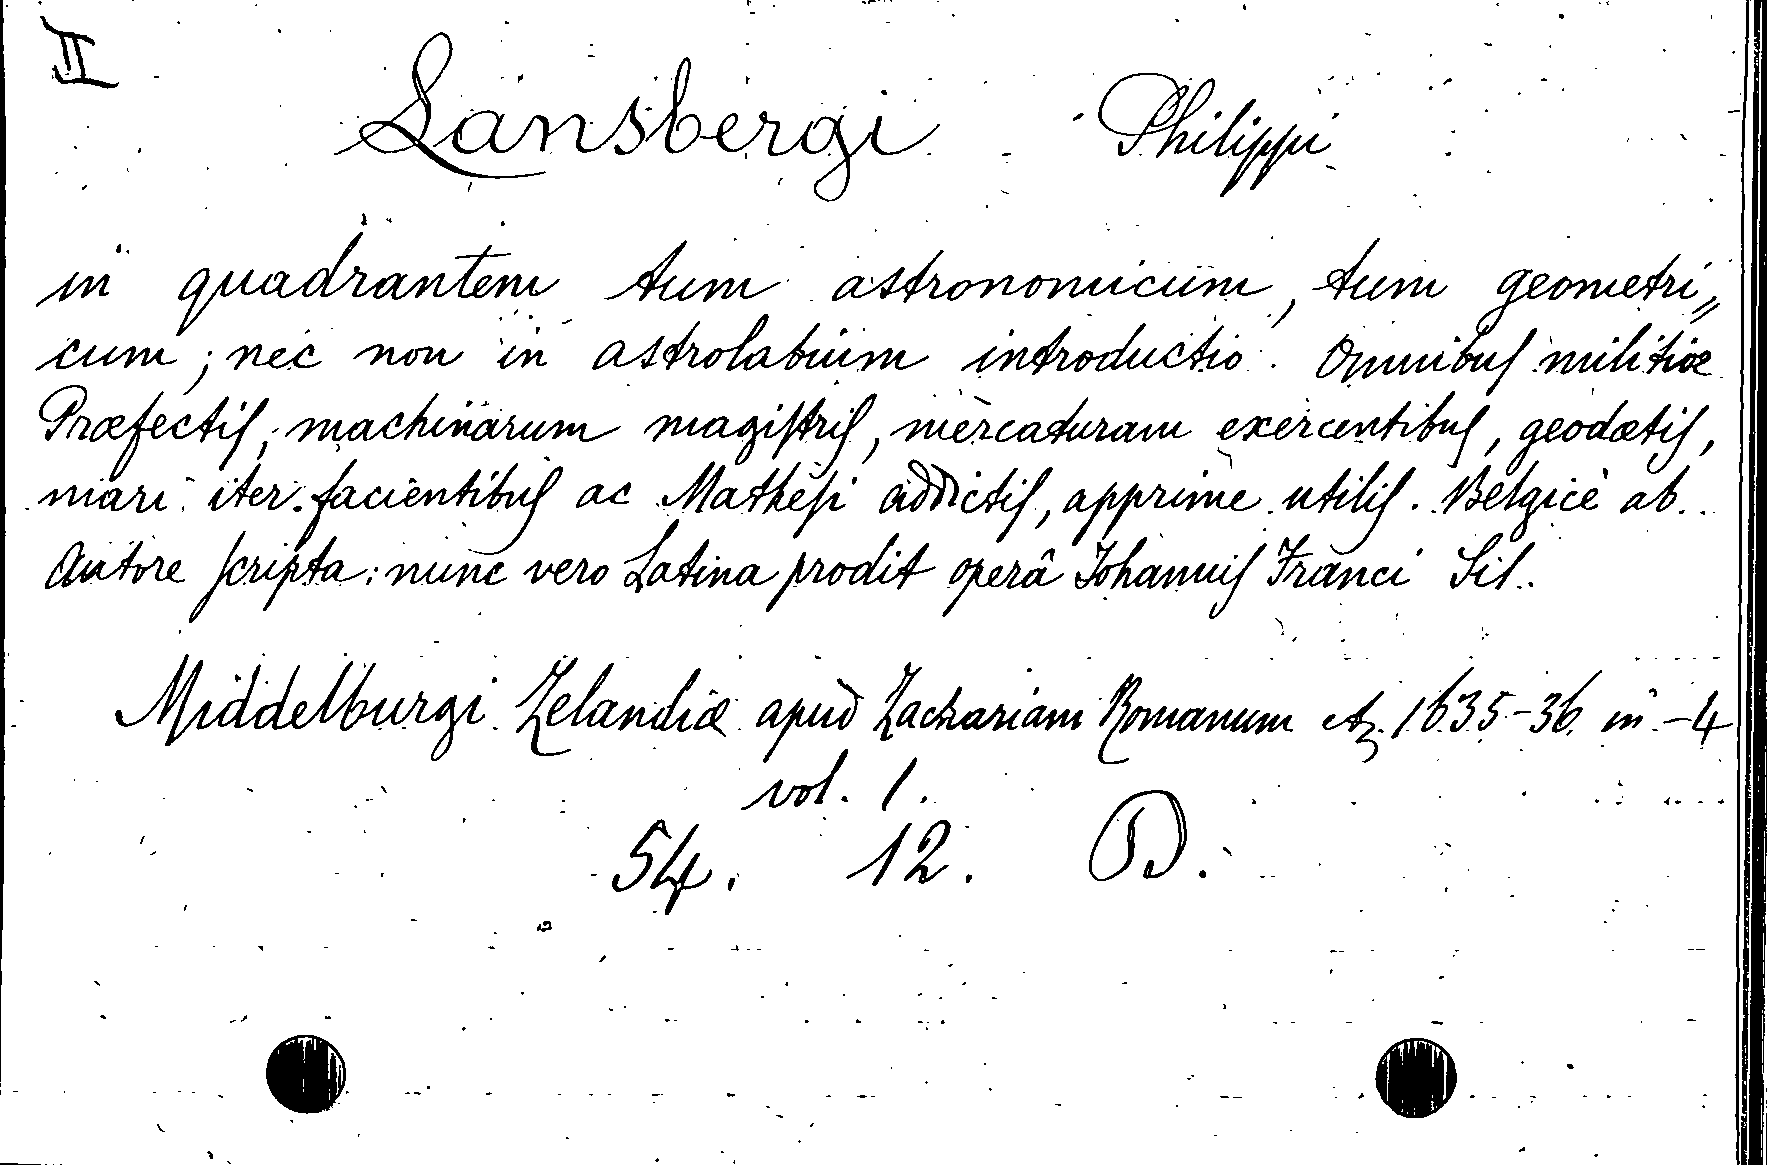 II
Lansbergi Philippi
in quadrantem tum astronomicum, tum geometri„
cum; nec non in astrolabium introductio. Omnibus militiæ
Præfectis, machinarum magistris, mercaturam exercentibus, geodætis,
mari iter facientibus ac Mathesi addictis, apprime utilis. Belgicè ab
Autore scripta: nunc vero Latina prodit operâ Johannis Franci Sil.
Middelburgi Zelandiæ apud Zachariam Romanum 1635-36 in-4
vol. 1.
54. 12. D.